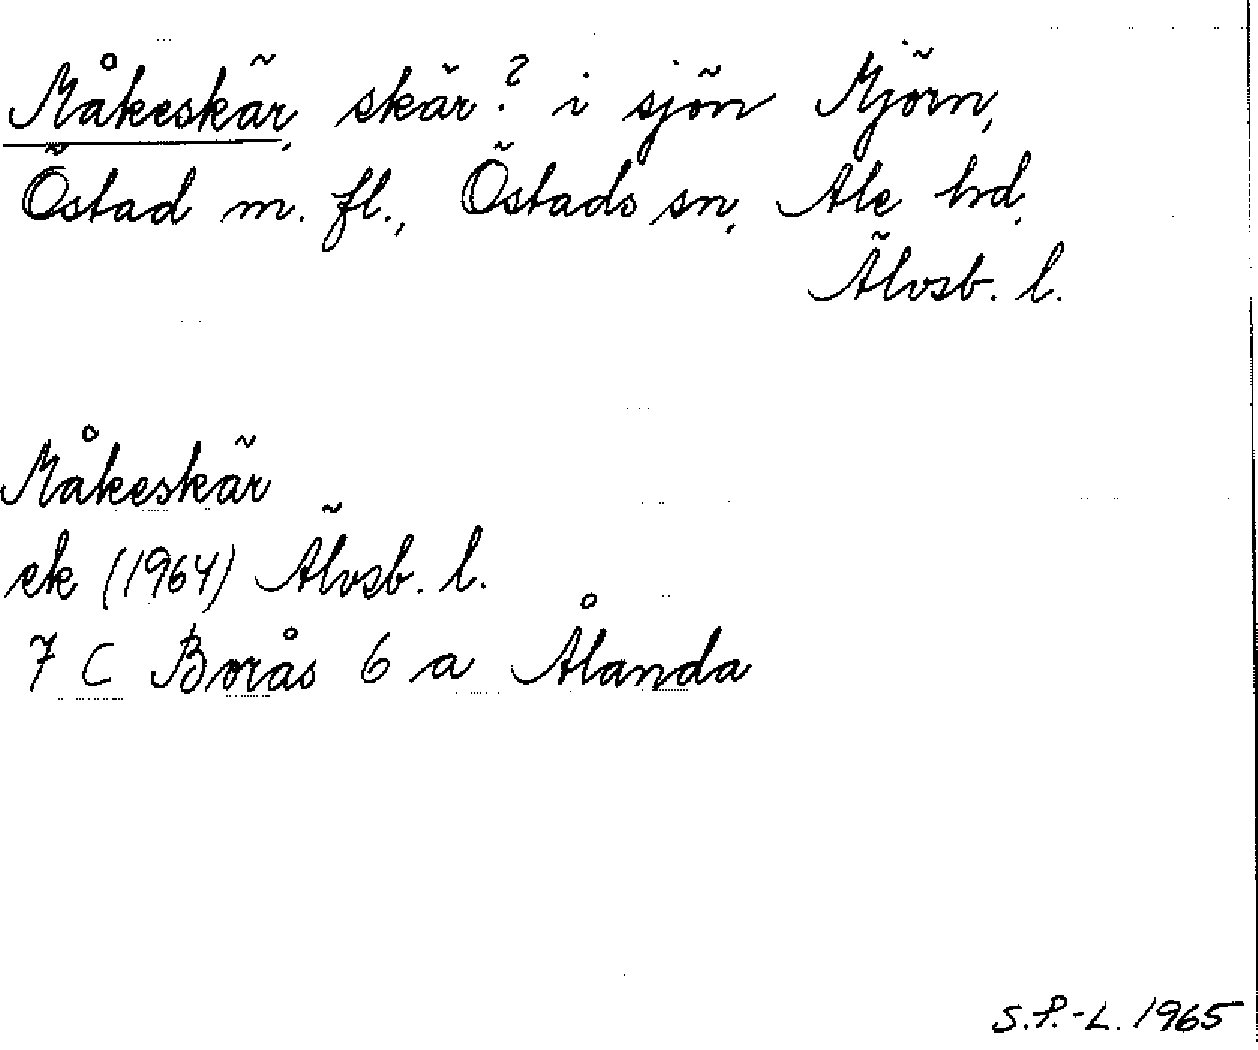 Måkeskär, skär? i sjön Mjörn,
Östad m. fl., Östads sn, Ale hd,
Älvsb. l.
Måkeskär
ek (1964) Älvsb. l.
7 C Borås 6 a Ålanda
S.P.-L. 1965